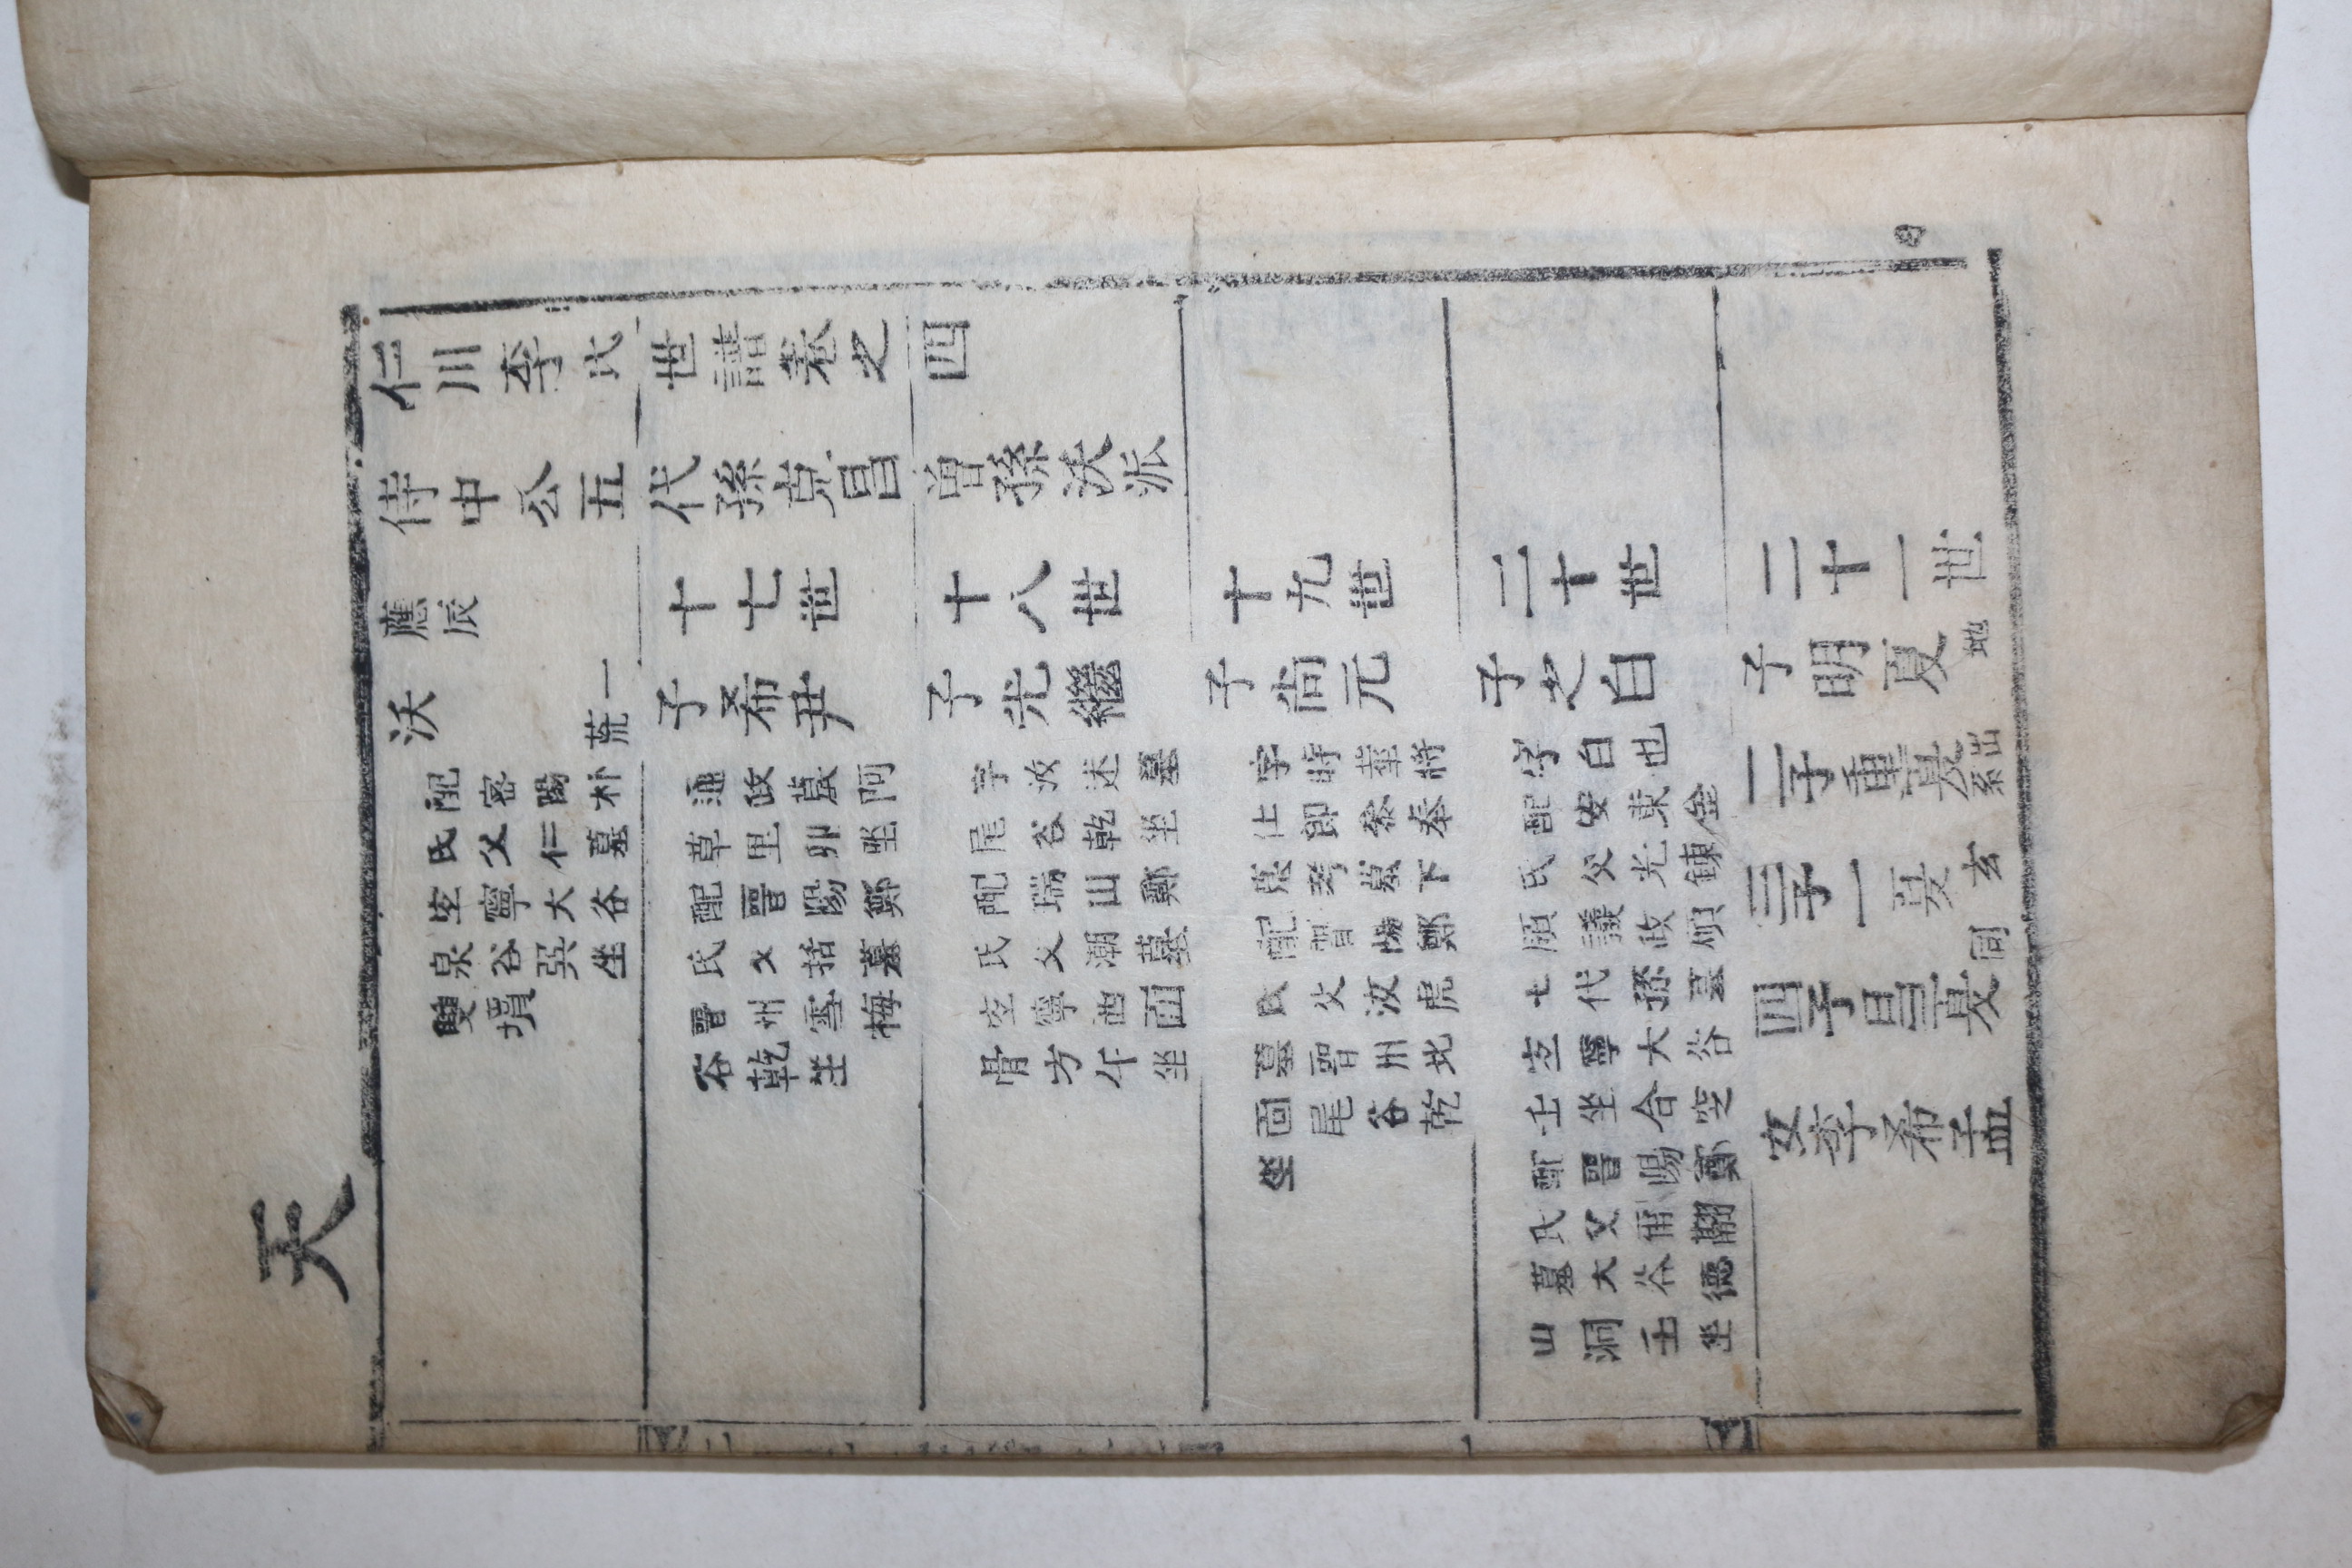 天
仁川李氏世譜卷之四
侍中公五代孫克昌曾孫沃派
應辰
沃
一荒
配密陽朴
氏父仁墓
宜寧大谷
泉谷巽坐
雙墳
十七世
子希尹
通政墓阿
草里卯坐
配晋陽鄭
氏父括墓
晋州雪梅
谷乾坐
十八世
子光繼
字汝述墓
尾谷乾坐
配瑞山鄭
氏父潮墓
宜寧西面
骨方午坐
十九世
子尙元
字時華將
仕郞叅奉
墓考墓下
配晋陽鄭
氏父汝虎
墓晋州北
面尾谷乾
坐
二十世
子之白
字白也
配安東金
氏父光鍊
順議政碩
七代孫墓
宜寧大谷
壬坐合窆
配晋陽鄭
氏父爾翻
墓大谷德
山洞壬坐
二十一世
子明夏 地
二子重夏 出系
三子一夏 玄
四子昌夏 同
女李希孟